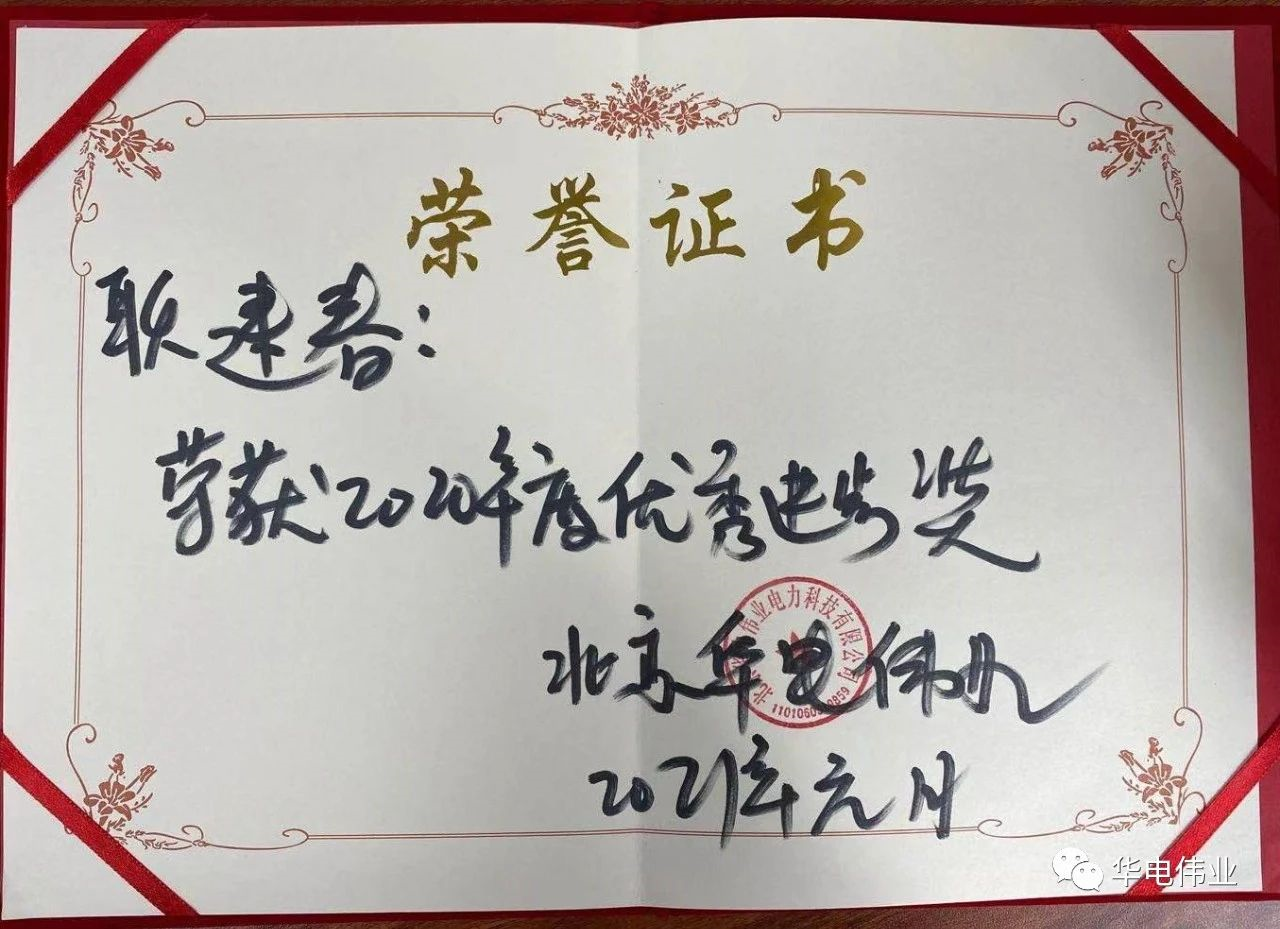 荣誉证书
耿建春：
荣获2020年度优秀进步奖
北京华电伟业
伟业电力科技有限公司
2021年元月
华电伟业